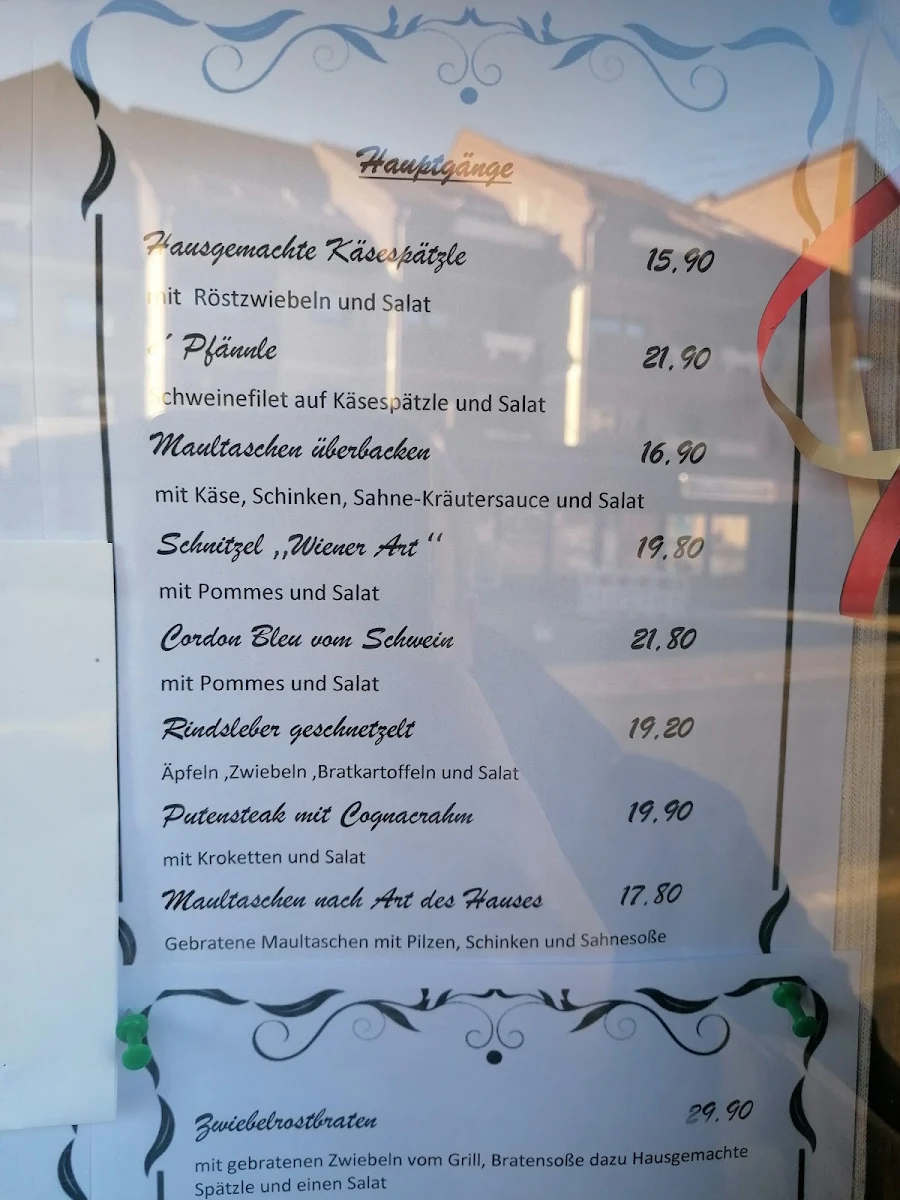 Hauptgänge
Hausgemachte Käsespätzle 15,90
mit Röstzwiebeln und Salat
´ Pfännle 21,90
Schweinefilet auf Käsespätzle und Salat
Maultaschen überbacken 16,90
mit Käse, Schinken, Sahne-Kräutersauce und Salat
Schnitzel ,,Wiener Art “ 19,80
mit Pommes und Salat
Cordon Bleu vom Schwein 21,80
mit Pommes und Salat
Rindsleber geschnetzelt 19,20
Äpfeln ,Zwiebeln ,Bratkartoffeln und Salat
Putensteak mit Cognacrahm 19,90
mit Kroketten und Salat
Maultaschen nach Art des Hauses 17,80
Gebratene Maultaschen mit Pilzen, Schinken und Sahnesoße
Zwiebelrostbraten 29,90
mit gebratenen Zwiebeln vom Grill, Bratensoße dazu Hausgemachte
Spätzle und einen Salat